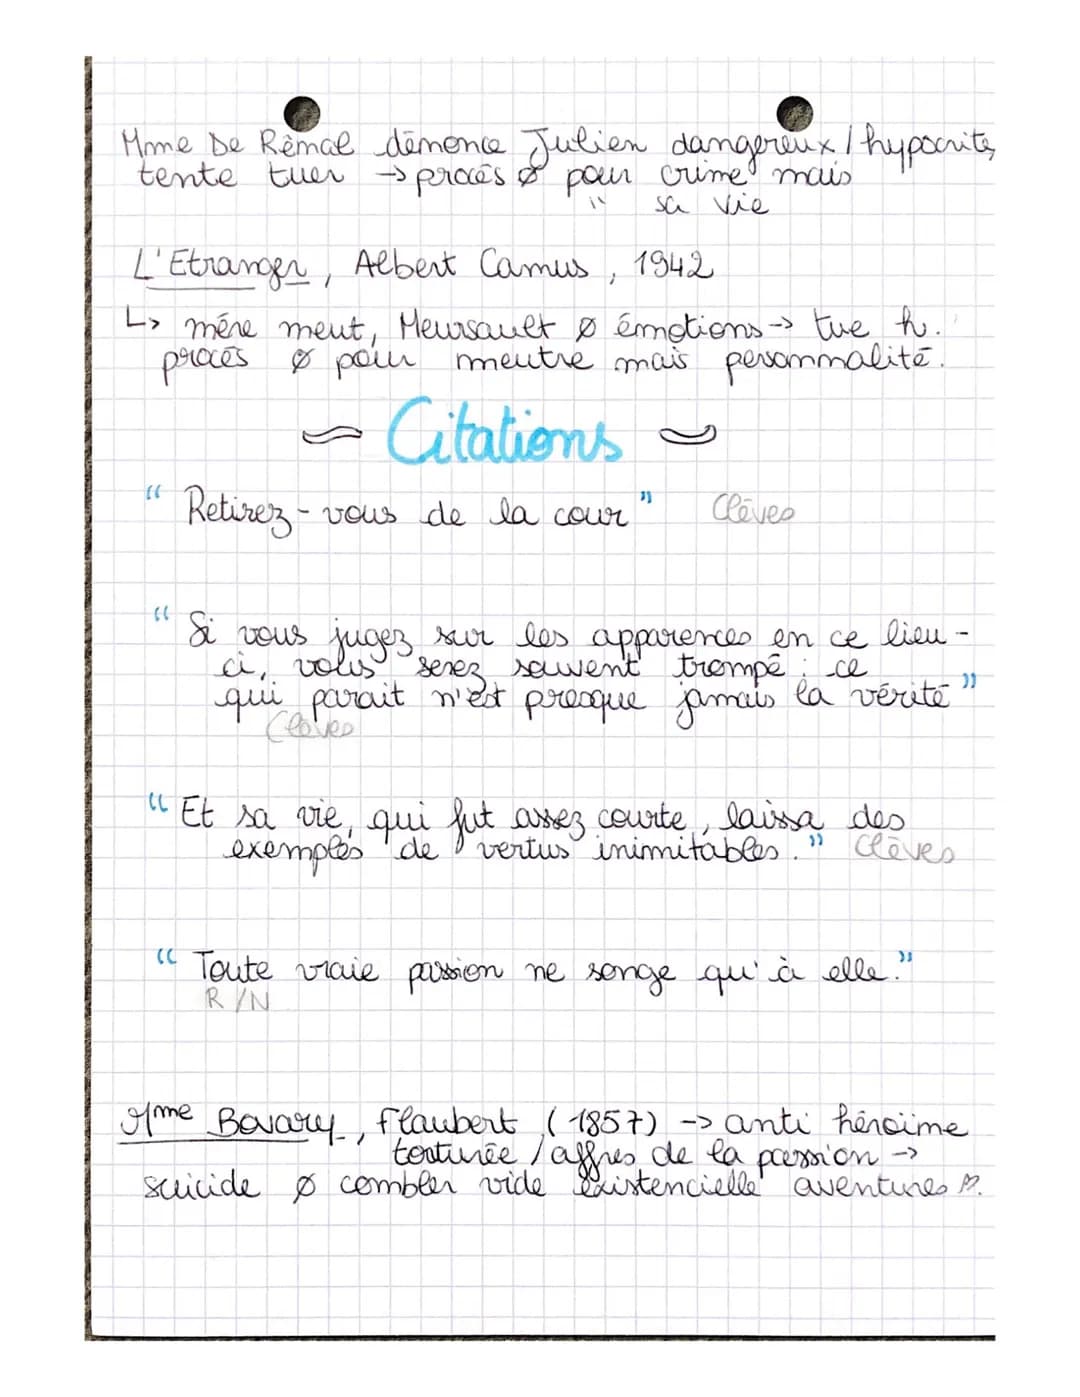 Mme De Rêmal dénonce Julien dangereux / hypocrite,
tente tuer → procès ø pour crime mais
" sa vie
L'Etranger, Albert Camus, 1942
↳ mère meut, Meursault ø émotions → tue h.
procès ø pour meutre mais personnalité.
Citations
" Retirez-vous de la cour " Clèves
" Si vous jugez sur les apparences en ce lieu-
ci, vous serez souvent trompé : ce
qui parait n'est presque jamais la vérité "
Clèves
" Et sa vie, qui fut assez courte, laissa des
exemples de vertus inimitables. " Clèves
" Toute vraie passion ne songe qu'à elle. "
R/N
Mme Bovary, Flaubert (1857) → anti héroïne
torturée / affres de la passion →
suicide ø combler vide existencielle aventures ♡.